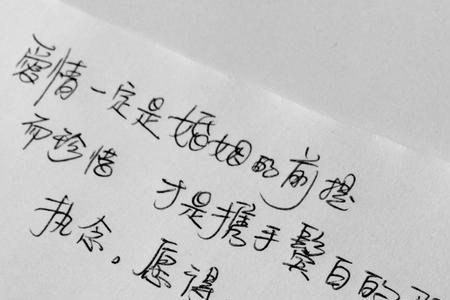 爱情一定是婚姻的前提
而珍惜 才是携手鬓白的
执念。愿得